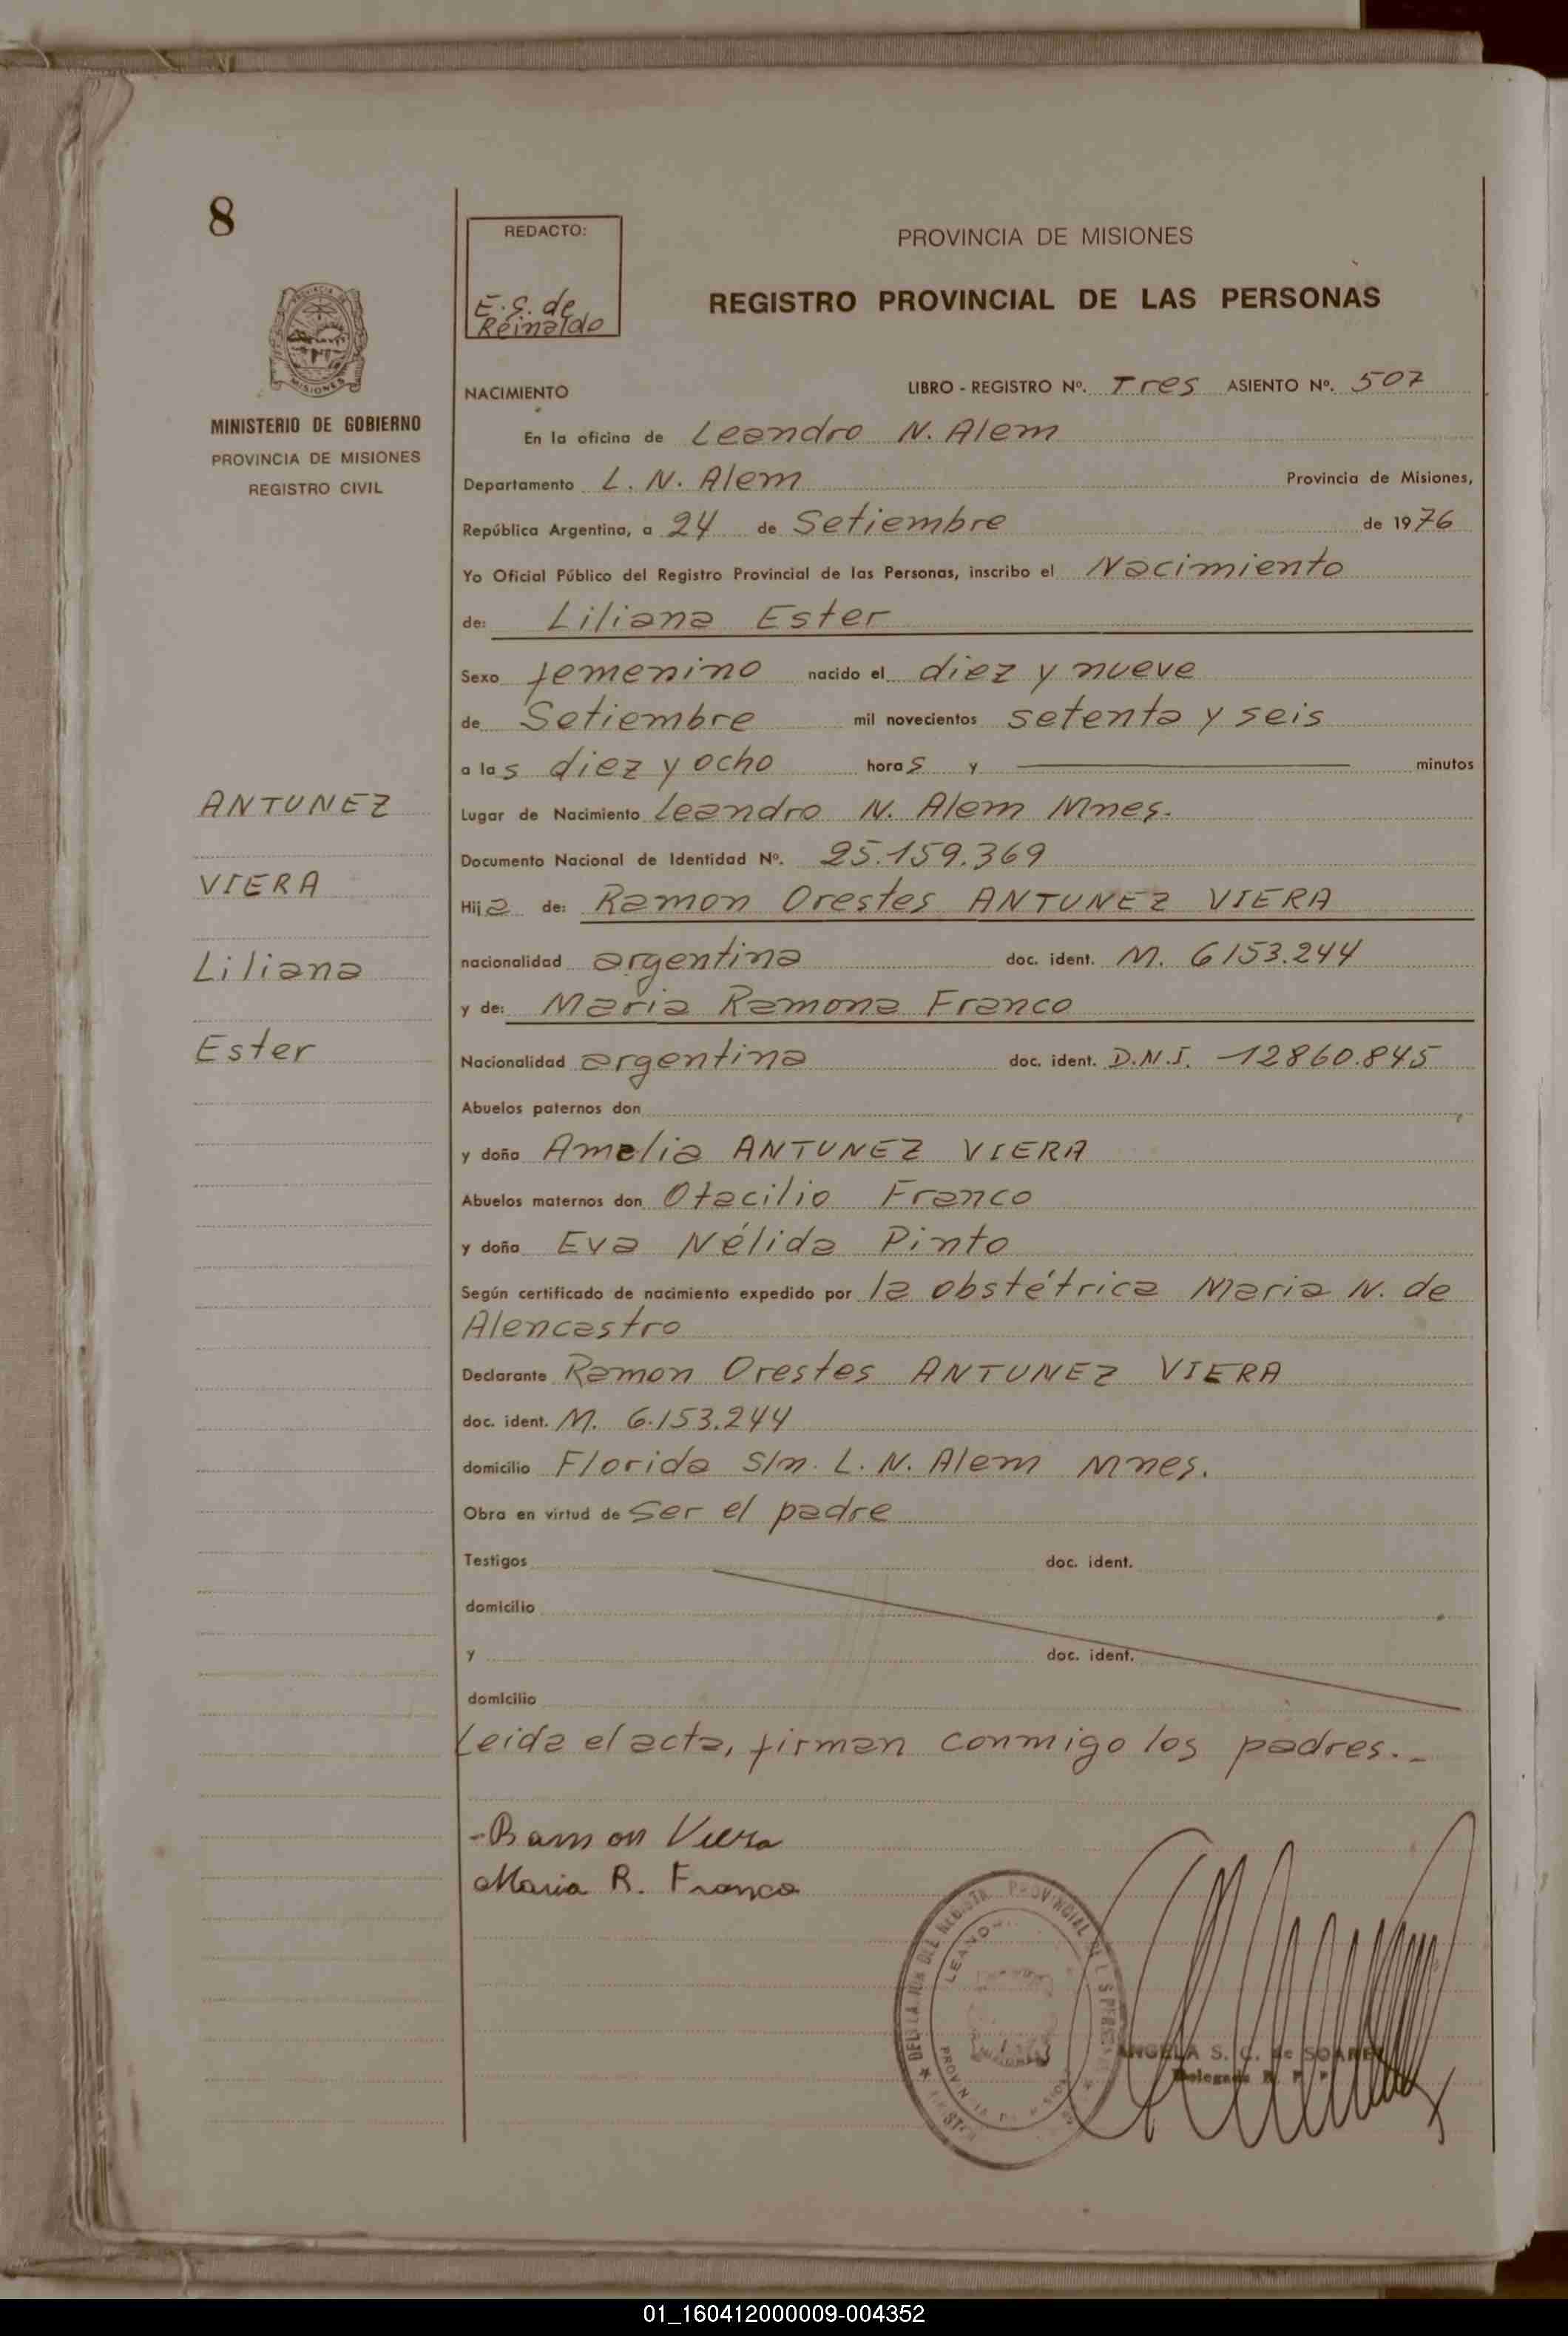 8
REDACTO:
E.S. de
Reinaldo
PROVINCIA DE MISIONES
REGISTRO PROVINCIAL DE LAS PERSONAS
MINISTERIO DE GOBIERNO
PROVINCIA DE MISIONES
REGISTRO CIVIL
NACIMIENTO LIBRO - REGISTRO Nº. Tres ASIENTO Nº. 507
En la oficina de Leandro N. Alem
Departamento L. N. Alem Provincia de Misiones,
República Argentina, a 24 de Setiembre de 1976
Yo Oficial Público del Registro Provincial de las Personas, inscribo el Nacimiento
de: Liliana Ester
Sexo femenino nacido el diez y nueve
de Setiembre mil novecientos setenta y seis
a las diez y ocho horas y minutos
ANTUNEZ
VIERA
Liliana
Ester
Lugar de Nacimiento Leandro N. Alem Mnes.
Documento Nacional de Identidad Nº. 25.159.369
Hija de: Ramon Orestes ANTUNEZ VIERA
nacionalidad argentina doc. ident. M. 6153.244
y de: Maria Ramona Franco
Nacionalidad argentina doc. ident. D.N.I. 12860.845
Abuelos paternos don
y doña Amelia ANTUNEZ VIERA
Abuelos maternos don Otacilio Franco
y doña Eva Nélida Pinto
Según certificado de nacimiento expedido por la obstétrica Maria N. de
Alencastro
Declarante Ramon Orestes ANTUNEZ VIERA
doc. ident. M. 6.153.244
domicilio Florida S/n. L. N. Alem Mnes.
Obra en virtud de ser el padre
Testigos doc. ident.
domicilio
y doc. ident.
domicilio
Leida el acta, firman conmigo los padres.-
-Ramon Viera
Maria R. Franco
PROVINCIAL
ANGELA S. C. de SOAREZ
Delegada R. P. P.
01_160412000009-004352